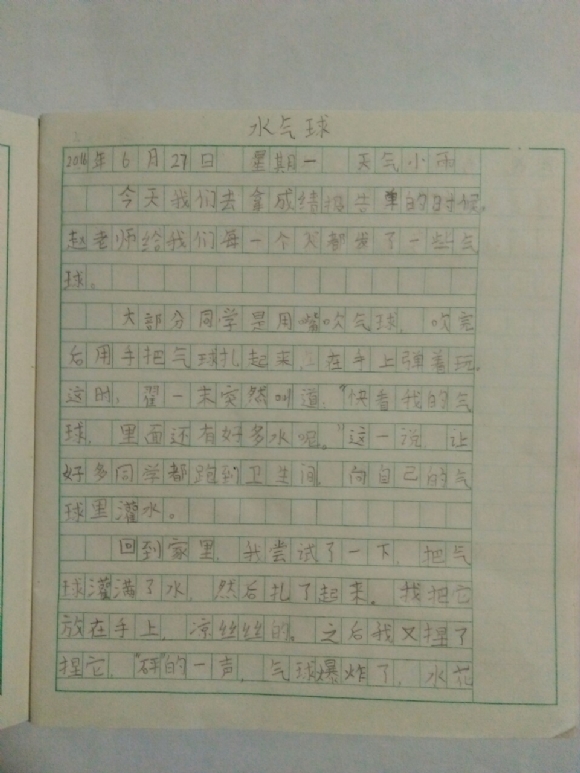 水气球
2016年6月27日 星期一 天气小雨
今天我们去拿成绩报告单的时候,
赵老师给我们每一个人都发了一些气
球。
大部分同学是用嘴吹气球,吹完
后用手把气球扎起来,在手上弹着玩。
这时,翟一末突然叫道:“快看我的气
球,里面还有好多水呢。”这一说,让
好多同学都跑到卫生间,向自己的气
球里灌水。
回到家里,我尝试了一下,把气
球灌满了水,然后扎了起来。我把它
放在手上,凉丝丝的。之后我又捏了
捏它,“砰”的一声,气球爆炸了,水花